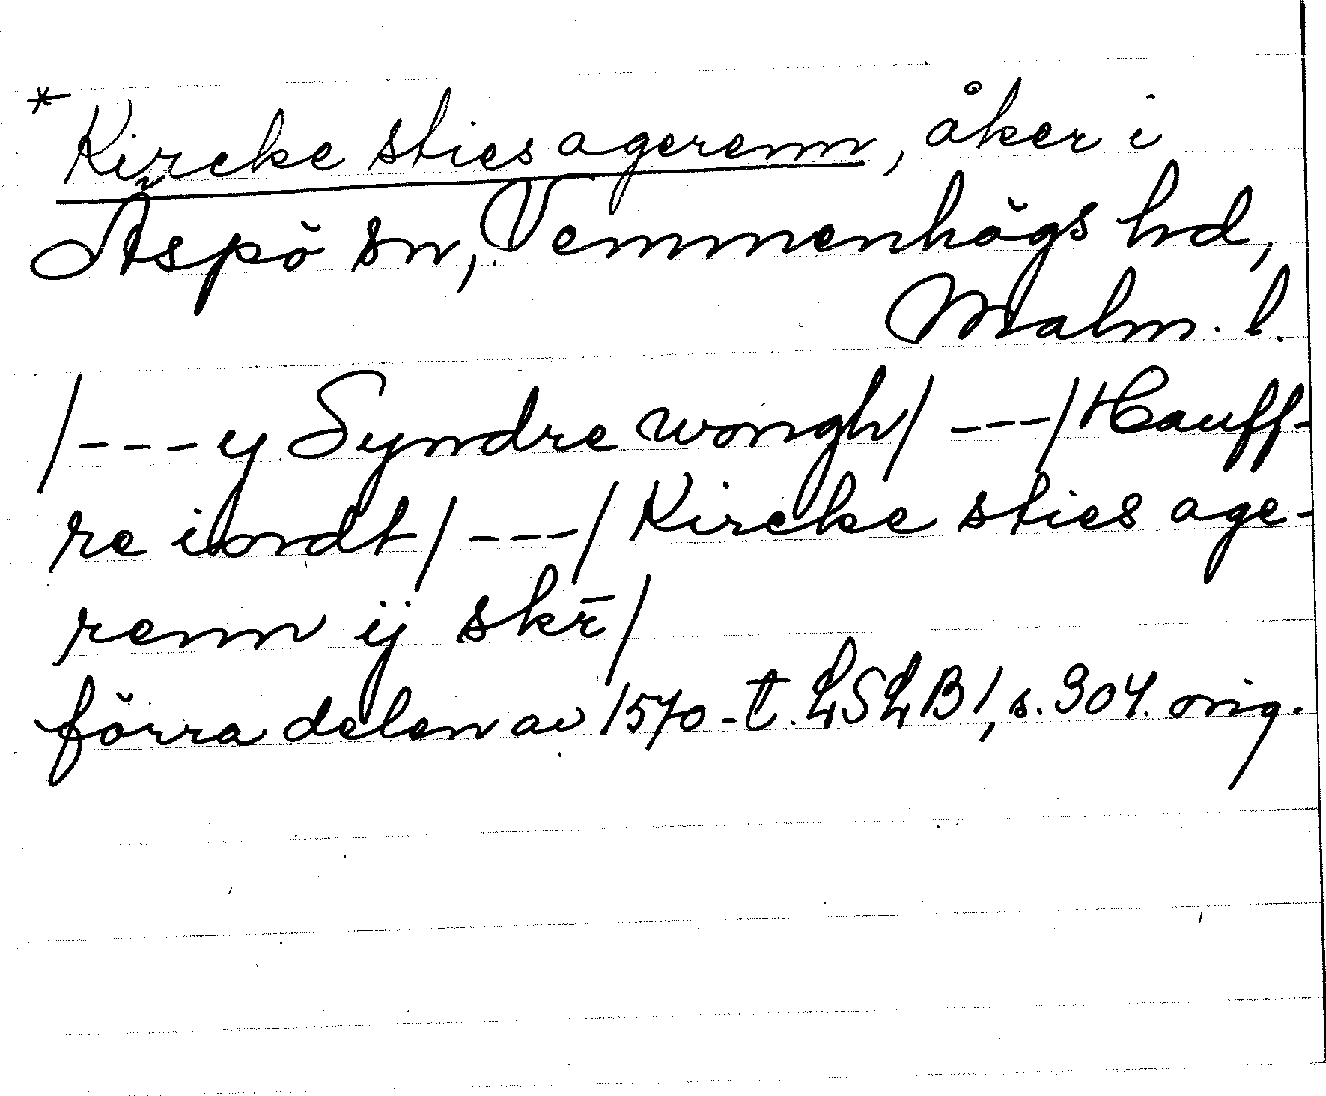 * Kircke sties agerenn, åker i
Äspö sn, Vemmenhögs hd,
Malm. l.
/---y Syndre wongh/ ---/Hauff-
re iordt/ ---/ Kircke sties age-
renn ij skr̄/
förra delen av 1570-t. LSLB1, s. 304. orig.